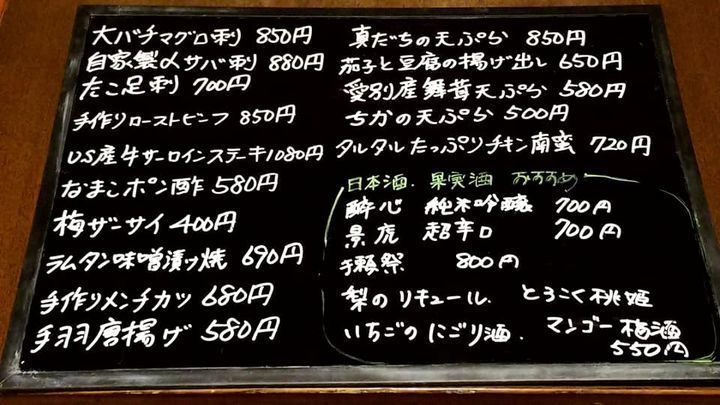 大バチマグロ刺 850円
自家製〆サバ刺 880円
たこ足刺 700円
手作りローストビーフ 850円
US産牛サーロインステーキ1080円
なまこポン酢 580円
梅ザーサイ 400円
ラムタン味噌漬け焼 690円
手作りメンチカツ 680円
手羽唐揚げ 580円
真だちの天ぷら 850円
茄子と豆腐の揚げ出し 650円
愛別産舞茸天ぷら 580円
ちかの天ぷら 500円
タルタルたっぷりチキン南蛮 720円
日本酒・果実酒 おすすめ
酔心 純米吟醸 700円
景虎 超辛口 700円
獺祭 800円
梨のリキュール、 とろこく桃姫
いちごのにごり酒、 マンゴー梅酒
550円